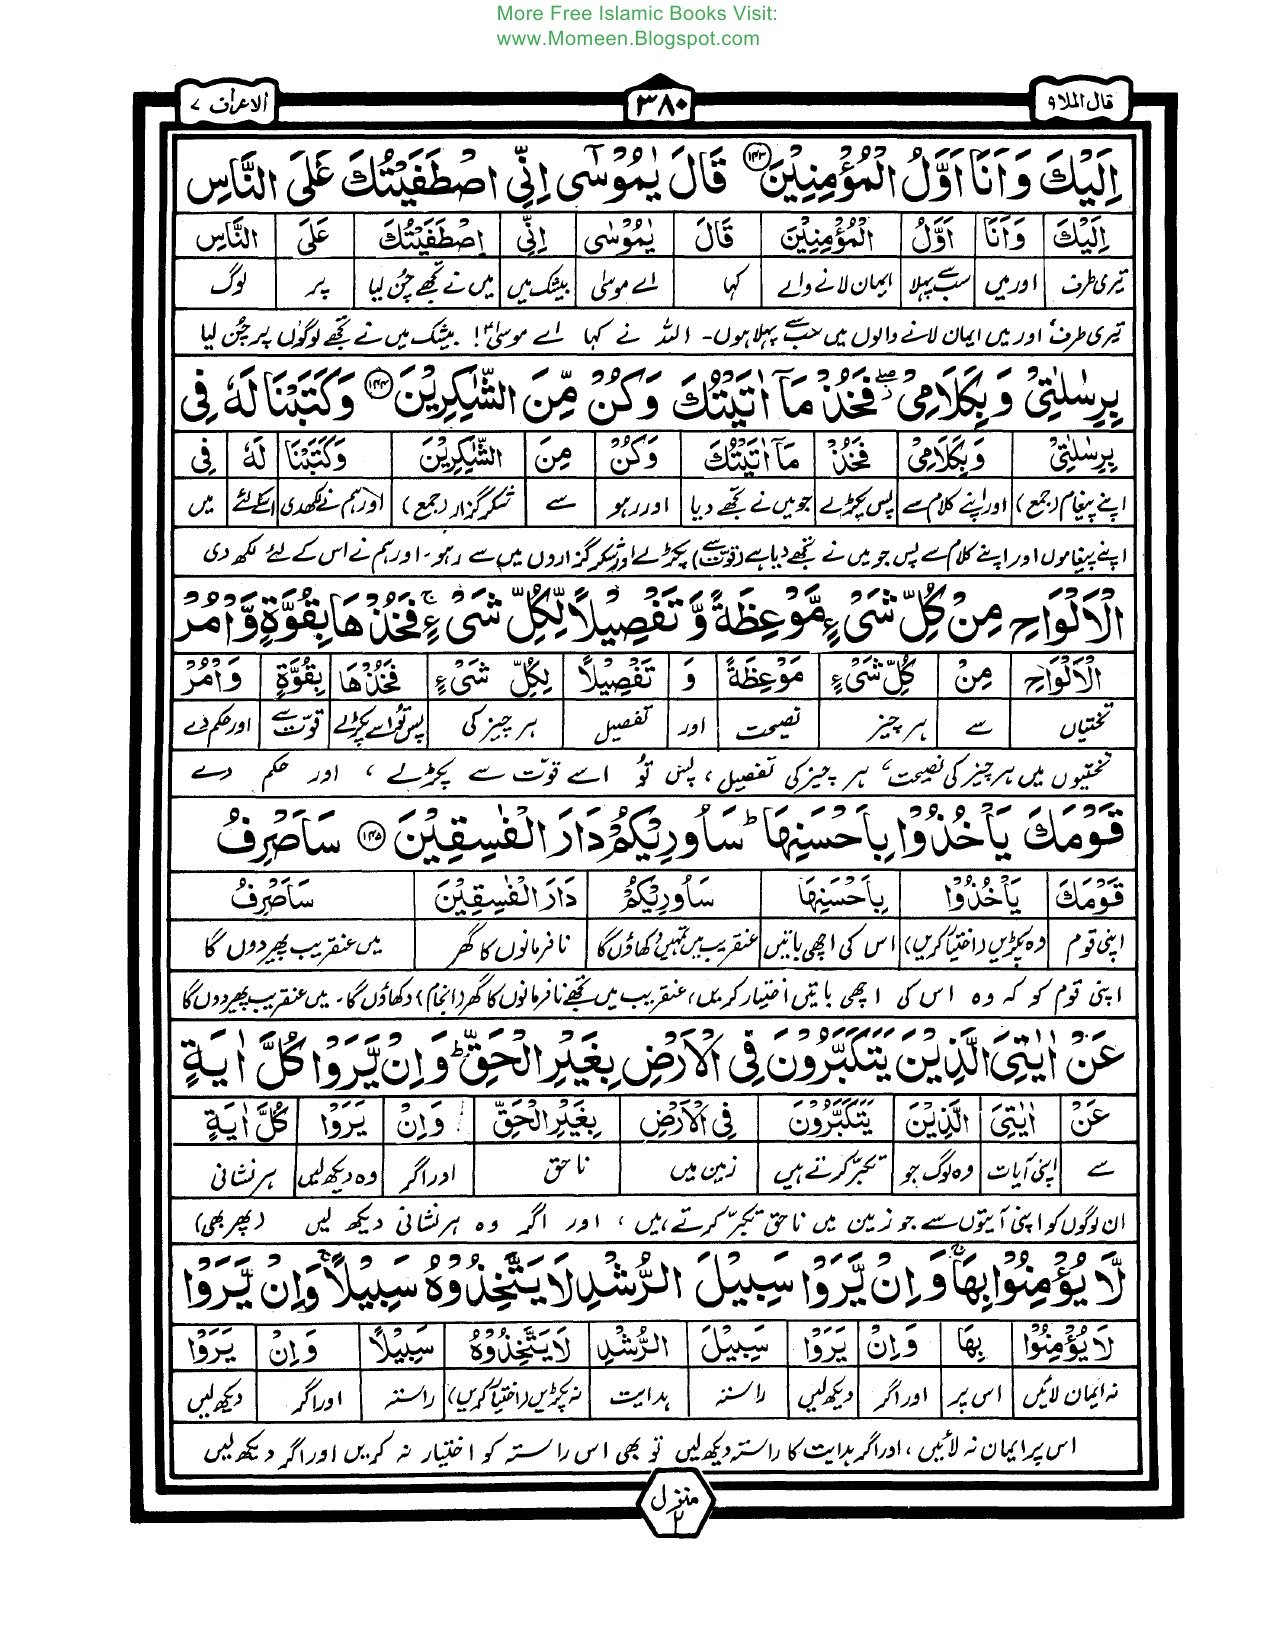 More Free Islamic Books Visit:
www.Momeen.Blogspot.com
قال الملا ۹
۳۸۰
الاعراف ۷
اِلَيْكَ وَ اَنَا اَوَّلُ الْمُؤْمِنِيْنَ ﴿۱۴۳﴾ قَالَ يٰمُوْسٰٓى اِنِّى اصْطَفَيْتُكَ عَلَى النَّاسِ
اِلَيْكَ وَاَنَا اَوَّلُ الْمُؤْمِنِيْنَ قَالَ يٰمُوْسٰٓى اِنِّى اصْطَفَيْتُكَ عَلَى النَّاسِ
تیری طرف اور میں سب سے پہلا ایمان لانے والے کہا اے موسیٰ بیشک میں میں نے تجھے چن لیا پر لوگ
تیری طرف، اور میں ایمان لانے والوں میں سب سے پہلا ہوں۔ اللہ نے کہا اے موسیٰؑ! بیشک میں نے تجھے لوگوں پر چُن لیا
بِرِسٰلٰتِىْ وَ بِكَلَامِىْ ۖ فَخُذْ مَآ اٰتَيْتُكَ وَ كُنْ مِّنَ الشّٰكِرِيْنَ ﴿۱۴۴﴾ وَ كَتَبْنَا لَهٗ فِى
بِرِسٰلٰتِىْ وَبِكَلَامِىْ فَخُذْ مَآ اٰتَيْتُكَ وَكُنْ مِنَ الشّٰكِرِيْنَ وَكَتَبْنَا لَهٗ فِى
اپنے پیغام (جمع) اور اپنے کلام سے پس پکڑ لے جو میں نے تجھے دیا اور رہو سے شکر گزار (جمع) اور ہم نے لکھدی اسکے لئے میں
اپنے پیغاموں اور اپنے کلام سے پس جو میں نے تجھے دیا ہے (قوت سے) پکڑ لے اور شکر گزاروں میں سے رہو۔ اور ہم نے اس کے لئے لکھ دی
الْاَلْوَاحِ مِنْ كُلِّ شَىْءٍ مَّوْعِظَةً وَّ تَفْصِيْلًا لِّكُلِّ شَىْءٍ ۚ فَخُذْهَا بِقُوَّةٍ وَّ اْمُرْ
الْاَلْوَاحِ مِنْ كُلِّ شَىْءٍ مَوْعِظَةً وَ تَفْصِيْلًا لِكُلِّ شَىْءٍ فَخُذْهَا بِقُوَّةٍ وَاْمُرْ
تختیاں سے ہر چیز نصیحت اور تفصیل ہر چیز کی پس تو اسے پکڑ لے قوّت سے اور حکم دے
تختیوں میں ہر چیز کی نصیحت، ہر چیز کی تفصیل، پس تُو اسے قوّت سے پکڑ لے، اور حکم دے
قَوْمَكَ يَاْخُذُوْا بِاَحْسَنِهَا ؕ سَاُورِيْكُمْ دَارَ الْفٰسِقِيْنَ ﴿۱۴۵﴾ سَاَصْرِفُ
قَوْمَكَ يَاْخُذُوْا بِاَحْسَنِهَا سَاُورِيْكُمْ دَارَ الْفٰسِقِيْنَ سَاَصْرِفُ
اپنی قوم وہ پکڑیں (اختیار کریں) اس کی اچھی باتیں عنقریب میں تمہیں دکھاؤں گا نافرمانوں کا گھر میں عنقریب پھیر دوں گا
اپنی قوم کو کہ وہ اس کی اچھی باتیں اختیار کریں، عنقریب میں تجھے نافرمانوں کا گھر (انجام) دکھاؤں گا۔ میں عنقریب پھیر دوں گا
عَنْ اٰيٰتِىَ الَّذِيْنَ يَتَكَبَّرُوْنَ فِى الْاَرْضِ بِغَيْرِ الْحَقِّ ؕ وَ اِنْ يَّرَوْا كُلَّ اٰيَةٍ
عَنْ اٰيٰتِىَ الَّذِيْنَ يَتَكَبَّرُوْنَ فِى الْاَرْضِ بِغَيْرِ الْحَقِّ وَاِنْ يَرَوْا كُلَّ اٰيَةٍ
سے اپنی آیات وہ لوگ جو تکبّر کرتے ہیں زمین میں ناحق اور اگر وہ دیکھ لیں ہر نشانی
ان لوگوں کو اپنی آیتوں سے جو زمین میں ناحق تکبّر کرتے ہیں، اور اگر وہ ہر نشانی دیکھ لیں (پھر بھی)
لَّا يُؤْمِنُوْا بِهَا ۚ وَ اِنْ يَّرَوْا سَبِيْلَ الرُّشْدِ لَا يَتَّخِذُوْهُ سَبِيْلًا ۚ وَ اِنْ يَّرَوْا
لَا يُؤْمِنُوْا بِهَا وَاِنْ يَرَوْا سَبِيْلَ الرُّشْدِ لَا يَتَّخِذُوْهُ سَبِيْلًا وَاِنْ يَرَوْا
نہ ایمان لائیں اس پر اور اگر دیکھ لیں راستہ ہدایت نہ پکڑیں (اختیار کریں) راستہ اور اگر دیکھ لیں
اس پر ایمان نہ لائیں، اور اگر ہدایت کا راستہ دیکھ لیں تو بھی اس راستہ کو اختیار نہ کریں اور اگر دیکھ لیں
منزل
۲